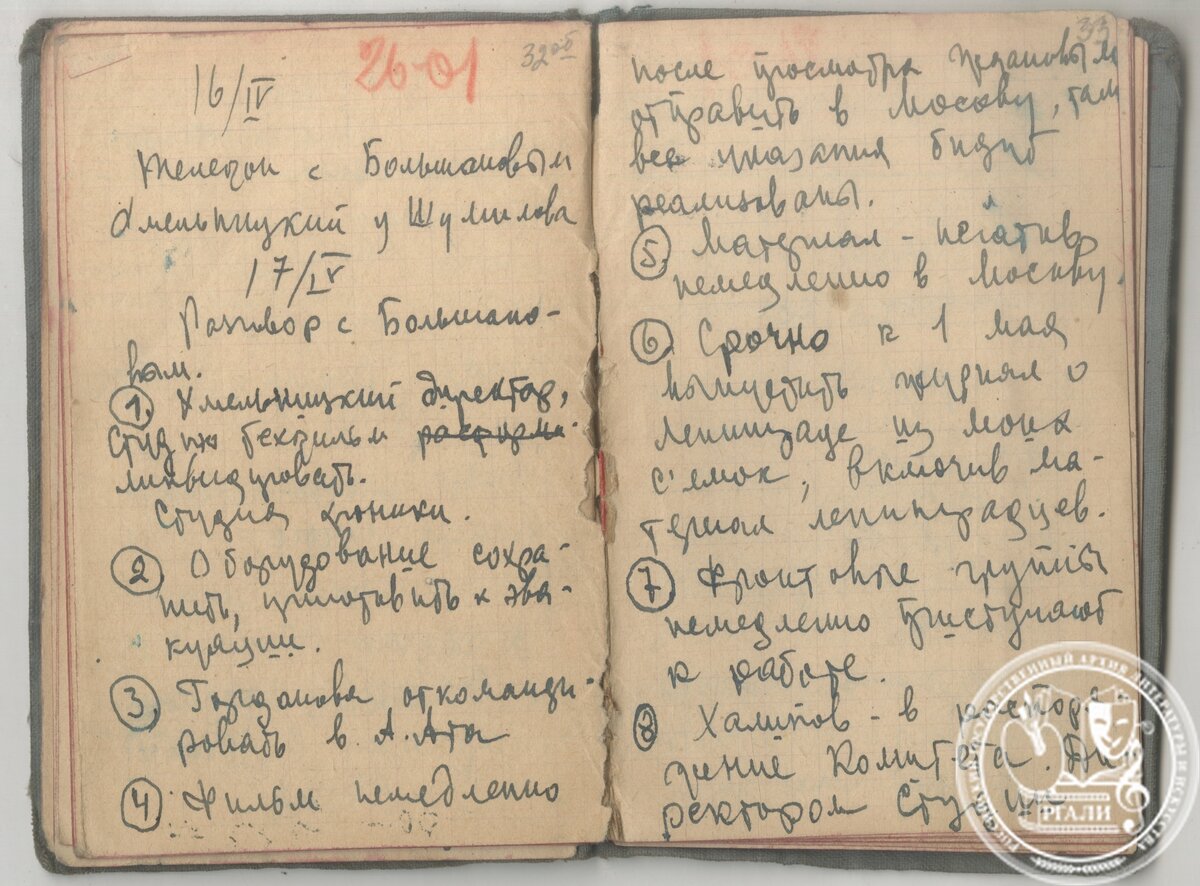 26-01
32об
16/IV
Телефон с Большаковым
Хмельницкий у Шумилова
17/IV
Разговор с Большако-
вым.
1. Хмельницкий директор,
студию Техфильм расформи-
ликвидировать.
Студия хроники.
2 Оборудование сохра-
нить, приготовить к эва-
куации.
3. Горданова откоманди-
ровать в А. Ата
4 Фильм немедленно
33
после просмотра Ждановым
отправить в Москву, там
все указания будут
реализованы.
5. Материал - негатив
немедленно в Москву.
6 Срочно к 1 мая
выпустить журнал о
Ленинграде из моих
с'емок, включив ма-
териал ленинградцев.
7 Фронтовые группы
немедленно приступают
к работе.
8 Халипов - в распоря-
жение Комитета. Ди-
ректором Студии
РОССИЙСКИЙ ГОСУДАРСТВЕННЫЙ АРХИВ ЛИТЕРАТУРЫ И ИСКУССТВА
РГАЛИ